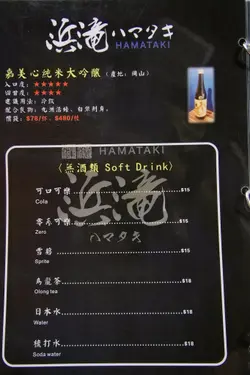 浜滝ハマタキ
HAMATAKI
嘉美心純米大吟釀 (產地: 岡山)
入口度: ★★★★★
回甘度: ★★★★
建議用法: 冷飲
配合食物: 九洲活蠔、白葉刺身。
價錢: $78/杯、$480/支
HAMATAKI
〈無酒類 Soft Drink〉
可口可樂 $15
Cola
零系可樂 $15
Zero
雪碧 $15
Sprite
浜滝
ハマタキ
烏龍茶 $18
Olong tea
日本水 $18
Water
梳打水 $18
Soda water